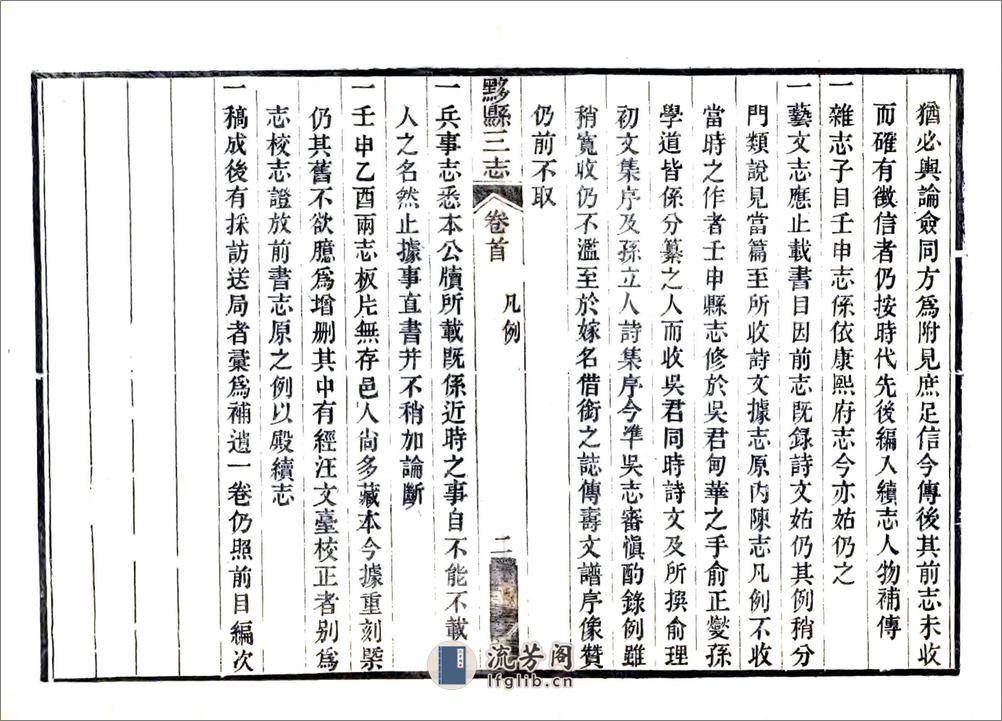 猶必輿論僉同方爲附見庶足信今傳後其前志未收
而確有徵信者仍按時代先後編入續志人物補傳
一雜志子目壬申志係依康熙府志今亦姑仍之
一藝文志應止載書目因前志既録詩文姑仍其例稍分
門類說見當篇至所收詩文據志原内陳志凡例不收
當時之作者壬申縣志修於吳君甸華之手俞正燮孫
學道皆係分纂之人而收吳君同時詩文及所撰俞理
初文集序及孫立人詩集序今準吳志審愼酌錄例雖
稍寬收仍不濫至於嫁名借銜之誌傳壽文譜序像贊
仍前不取
黟縣三志
卷首
凡例
二
一兵事志悉本公牘所載既係近時之事自不能不載
人之名然止據事直書并不稍加論斷
一壬申乙酉兩志板片無存邑人尚多藏本今據重刻槩
仍其舊不欲臆爲增刪其中有經汪文臺校正者别爲
志校志證放前書志原之例以殿續志
一稿成後有採訪送局者彙爲補遺一卷仍照前目編次
流芳阁
lfglib.cn